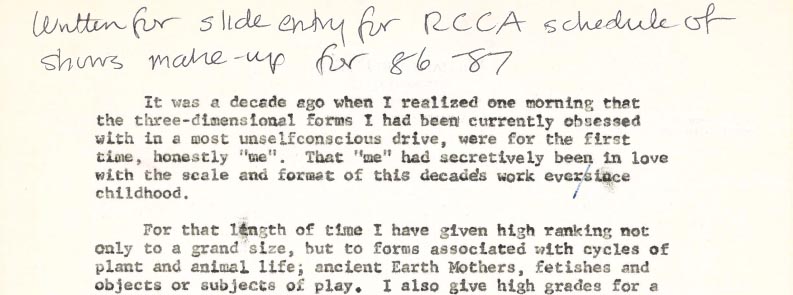 Written for slide entry for RCCA schedule of
shows make-up for 86-87
It was a decade ago when I realized one morning that
the three-dimensional forms I had been currently obsessed
with in a most unselfconscious drive, were for the first
time, honestly "me". That "me" had secretively been in love
with the scale and format of this decade's work ever/since
childhood.
For that length of time I have given high ranking not
only to a grand size, but to forms associated with cycles of
plant and animal life; ancient Earth Mothers, fetishes and
objects or subjects of play. I also give high grades for a